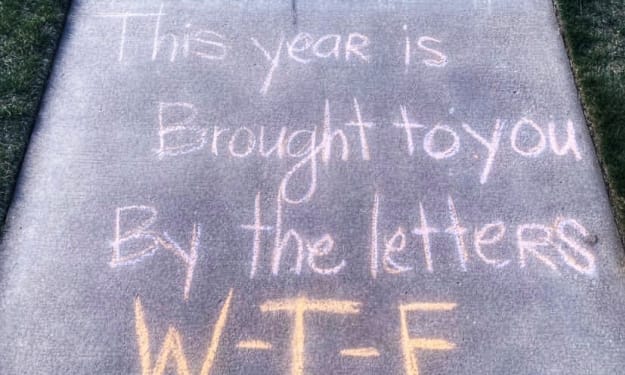 This year is
Brought to you
By the letters
W-T-F